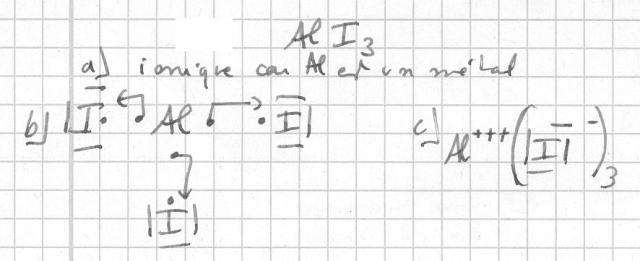 Al I₃
a) ionique car Al est un métal
b) |I· ·Al· ·I| c) Al⁺⁺⁺(|I|⁻)₃
|I|